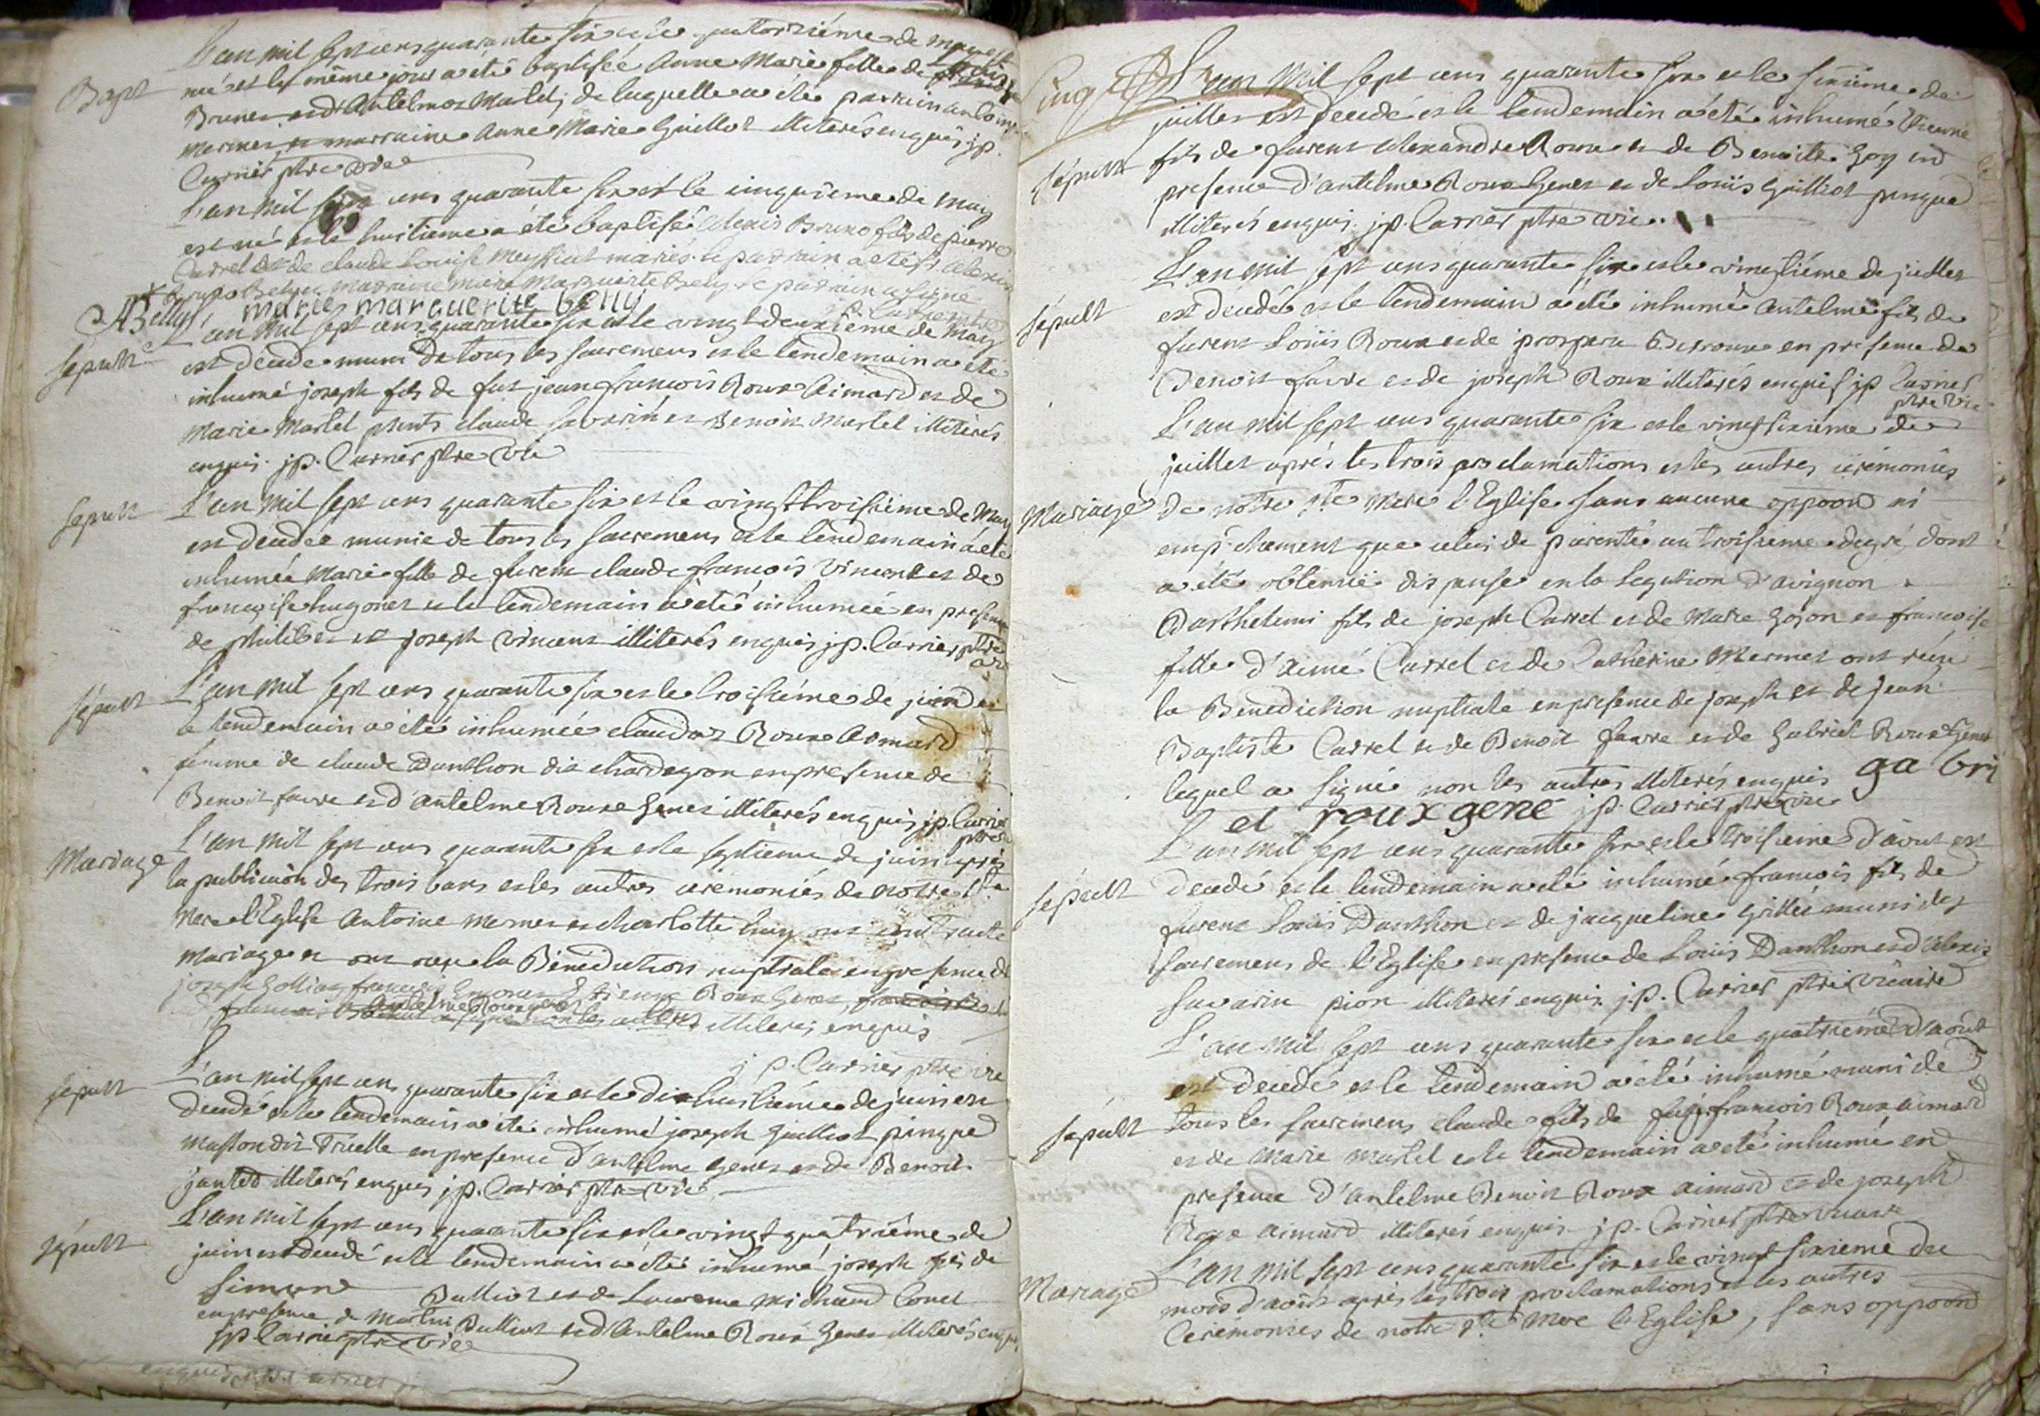 Bapt
L'an mil sept cens quarante six et le quatorzième de may est
né et le même jour a été baptisée Anne Marie fille de
Brunet et d'Antelmoz Martel, de laquelle a été parrain antoine
mermet et marraine Anne Marie Guillot illiterés enquis jp.
Carrier ptre vic
L'an mil sept cens quarante six et le cinquième de may
est né et le huitieme a été baptisé Alexis Bruno fils de pierre
Carrel et de claude Louise Meyssiat mariés. le parrain a été
Bruno Belly, marraine marie Marguerite Belly le parrain a signé
ABelly marie marguerite belly
sépult
L'an mil sept cens quarante six et le vingt deuxième de may
est decede muni de tous les sacremens et le lendemain a été
inhumé joseph fils de fut jean francois Roux Aimard et de
Marie Martel pnts claude savarin et Benoit Martel illiterés
enquis. jp. Carrier ptre vic
sepult
L'an mil sept cens quarante six et le vingt troisième de may
est decedée munie de tous les sacremens et le lendemain a été
inhumée Marie fille de furent claude francois Vincent et de
francoise hugonet et le lendemain a été inhumée en presence
de philibert et joseph vincent illiterés enquis j.p. Carrier ptre
vic
sépult
L'an mil sept cens quarante six et le troisième de juin et
le lendemain a été inhumée claudaz Roux Aimard
femme de claude Danthon dit chardeyron en presence de
Benoit favre et d'Antelme Roux Genet illiterés enquis j.p. Carrier
ptre
Mariage
L'an mil sept cens quarante six et le septieme de juin après
la publicaôn des trois bans et les autres ceremonies de notre ste
Mere l'Eglise Antoine mermet et charlotte huy ont contracté
Mariage et ont reçu la Bénédiction nuptiale en presence de
joseph Gollion, francois Etienne Roux Genet,
francois illiterés enquis
j p. Carrier ptre vic
sépult
L'an mil sept cens quarante six et le dixhuitième de juin est
decedé et le lendemain a été inhumé joseph Guilliot pingue
masson dit Truelle en presence d'antelme Genet et de Benoit
janted illiterés enquis jp. Carrier ptre vic
sépult
L'an mil sept cens quarante six et le vingt quatrième de
juin est decedé et le lendemain a été inhumé joseph fils de
Simon Bulliot et de Laurence Michaud Convt
en presence de Martin Bulliot et d'Antelme Roux Genet illiterés enquis
jp Carrier ptre vic
Cinq
L'an Mil sept cens quarante six et le sixieme de
juillet est decedé et le lendemain a été inhumé Etienne
sépult
fils de furent Alexandre Roux et de Benoite Goy en
presence d'antelme Roux Genet et de Loüis Guilliot pingue
illiterés enquis j.p. Carrier ptre vic.
L'an mil sept cens quarante six et le vingtième de juillet
sépult
est decédé et le lendemain a été inhumé Antelme fils de
furent Loüis Roux et de prospere Beroux en presence de
Benoit favre et de joseph Roux illiterés enquis jp Carrier
ptre vic
L'an mil sept cens quarante six et le vingtsixième de
juillet après les trois proclamations et les autres cérémonies
Mariage
de notre ste mere l'Eglise sans aucune oppoon ni
empêchement que celui de parenté au troisieme degré, dont
a été obtenuë dispense en la legation d'avignon.
Barthelemi fils de joseph Carrel et de Marie Gojon et francoise
fille d'aimé Carrel et de Catherine Mermet ont recu
la Benediction nuptiale en presence de joseph et de jean
Baptiste Carrel et de Benoit favre et de Gabriel Roux Genet
lequel a signé non les autres illiterés enquis ga bri
el rouxgene jp. Carrier ptre vic
L'an mil sept cens quarante six et le troisieme d'aout est
sépult
decedé et le lendemain a été inhumé francois fils de
furent Louis Danthon et de jacqueline Grillié muni des
sacremens de l'Eglise en presence de Louis Danthon et d'Alexis
Savarin pion illiterés enquis j.p. Carrier ptre vicaire
L'an mil sept cens quarante six et le quatrième d'août
est decedé et le lendemain a été inhumé muni de
sépult
tous les sacremens claude fils de feu francois Roux aimard
et de Marie Martel et le lendemain a été inhumé en
presence d'Antelme Benoit Roux aimard et de joseph
Roux aimard illiterés enquis jp. Carrier ptre vicaire
L'an mil sept cens quarante six et le vingt sixieme du
Mariage
mois d'août après les trois proclamations et les autres
Cerémonies de notre ste Mere l'Eglise, sans oppoon